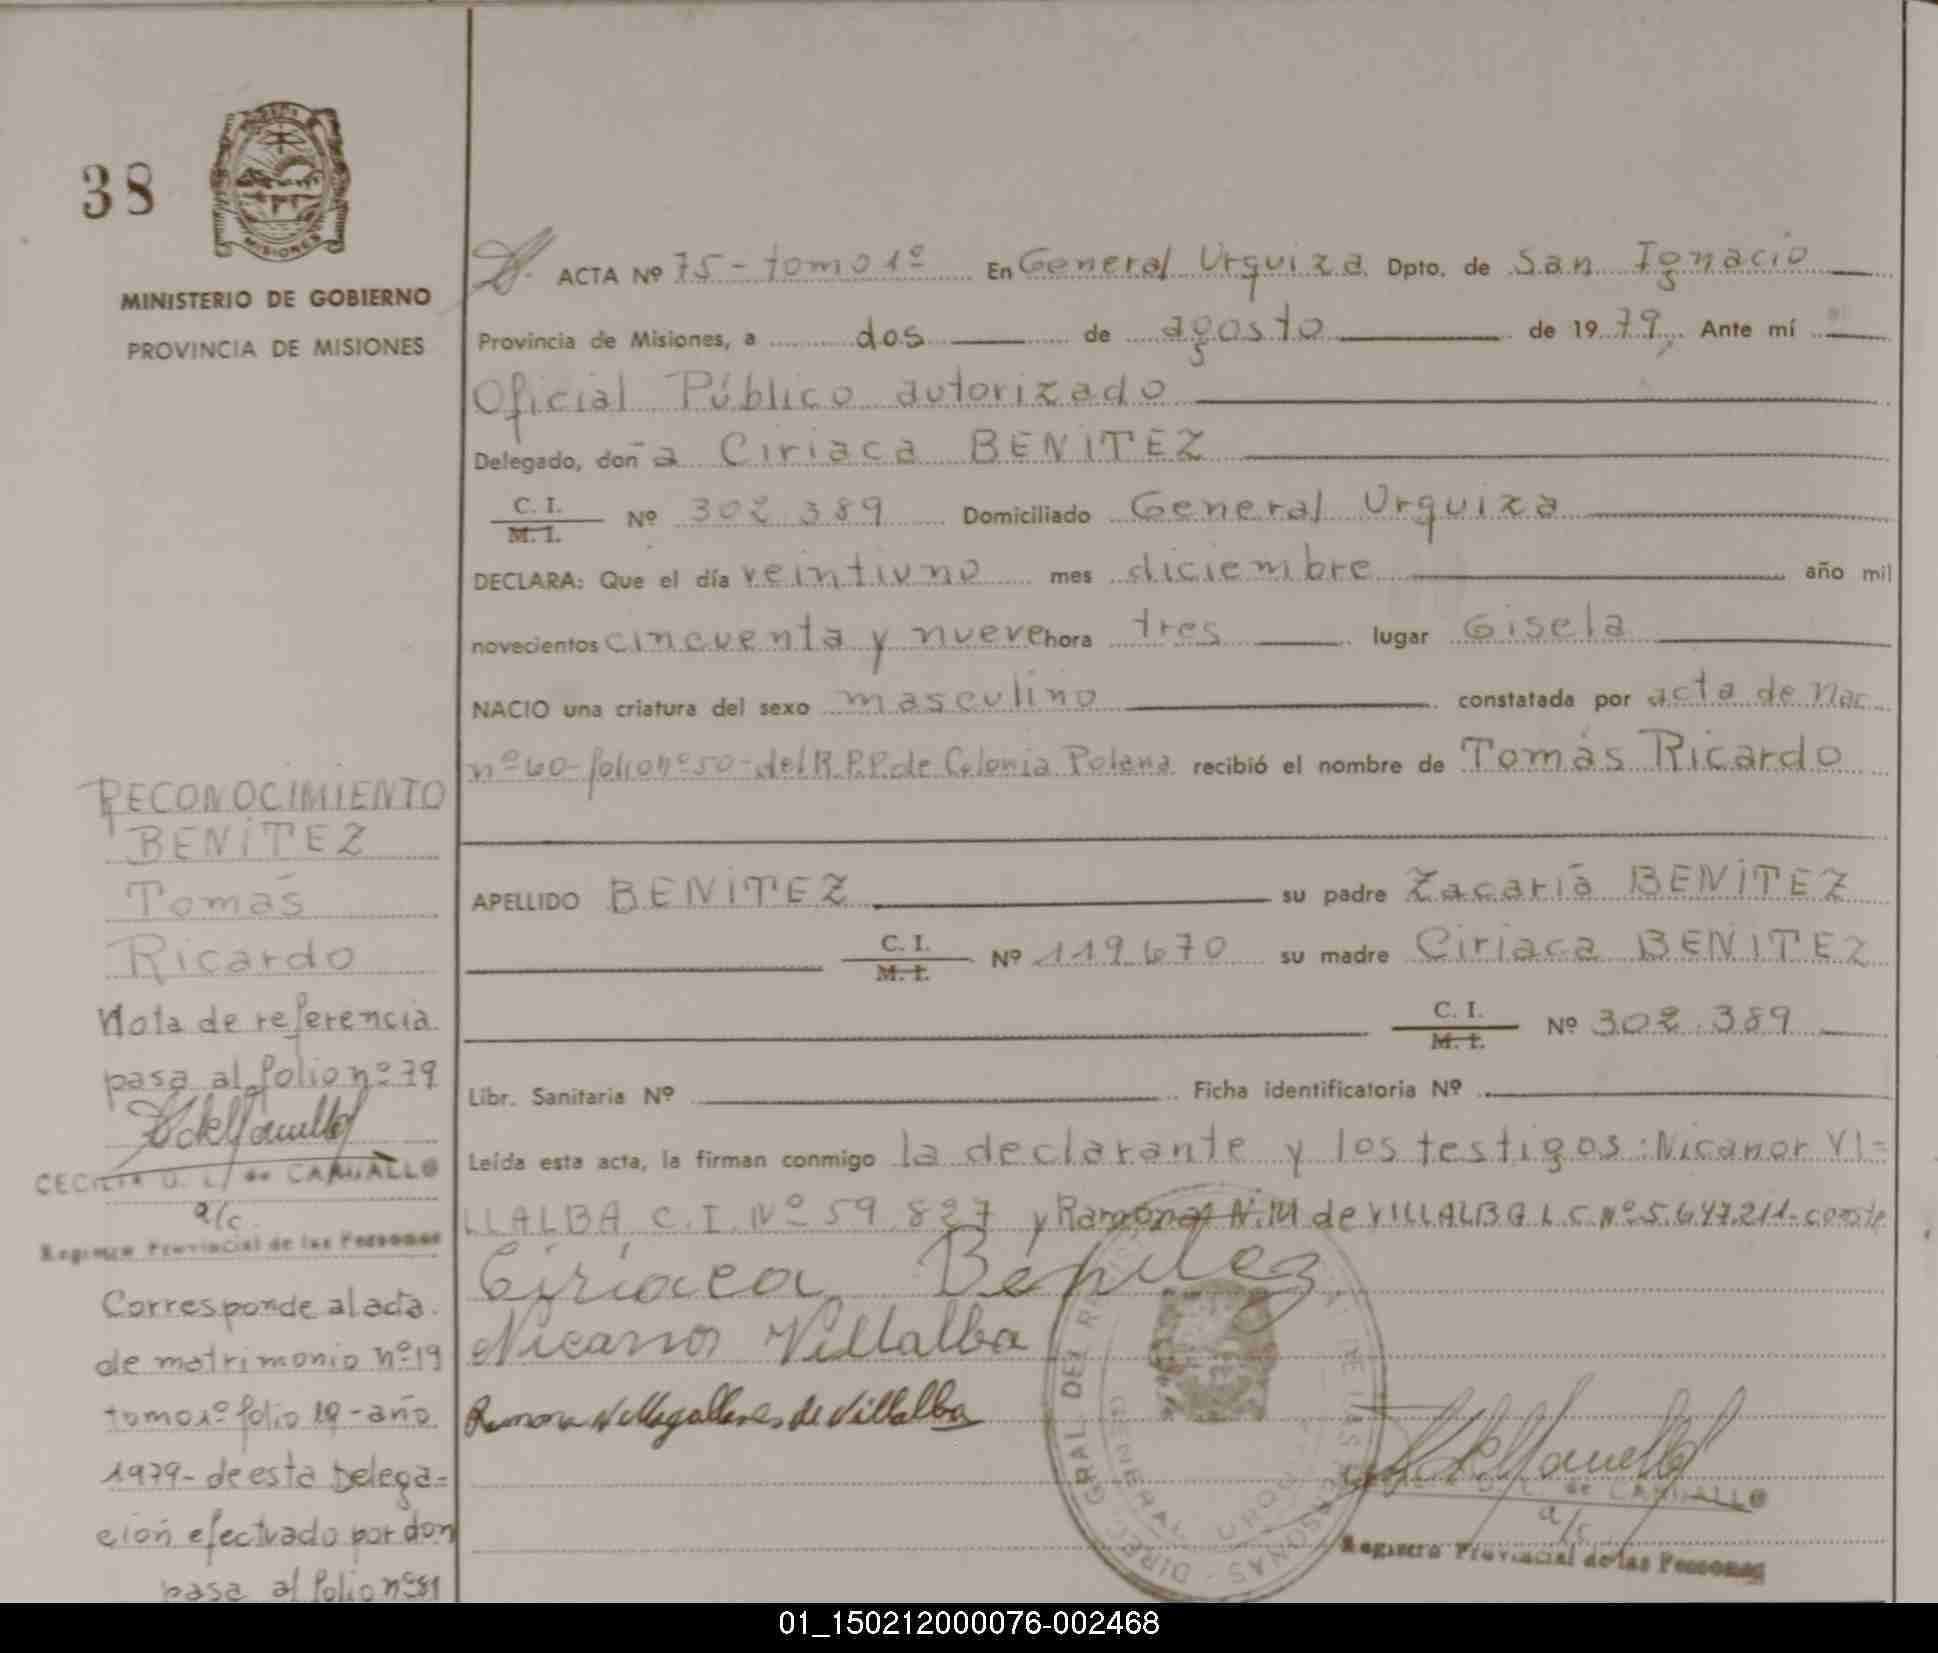 38
MISIONES
MINISTERIO DE GOBIERNO
PROVINCIA DE MISIONES
ACTA Nº 75 - tomo 1º En General Urquiza Dpto. de San Ignacio
Provincia de Misiones, a dos de agosto de 1979. Ante mí
Oficial Público autorizado
Delegado, doña Ciriaca BENITEZ
C. I.
M. I. Nº 302.389 Domiciliado General Urquiza
DECLARA: Que el día veintiuno mes diciembre año mil
novecientos cincuenta y nueve hora tres lugar Gisela
NACIO una criatura del sexo masculino constatada por acta de nac.
nº 60 - folio nº 50 - del R.P.P. de Colonia Polana recibió el nombre de Tomás Ricardo
APELLIDO BENITEZ su padre Zacaría BENITEZ
C. I.
M. I. Nº 119.670 su madre Ciriaca BENITEZ
C. I.
M. I. Nº 302.389
Libr. Sanitaria Nº Ficha identificatoria Nº
Leída esta acta, la firman conmigo la declarante y los testigos: Nicanor VI=
LLALBA C.I. Nº 59.827 y Ramona N.M de VILLALBA L.C. Nº 5.647.211- conste
Ciriaca Benitez
Nicanor Villalba
Ramona de Villalba
RECONOCIMIENTO
BENITEZ
Tomás
Ricardo
Nota de referencia
pasa al folio nº 79
CECILIA D. L. de CARVALLO
a/c.
Registro Provincial de las Personas
Corresponde al acta
de matrimonio nº 19
tomo 1º folio 19 - año
1979 - de esta Delega=
ción efectuado por don
pasa al folio nº 81
DIREC. GRAL. DEL REGISTRO DE LAS PERSONAS
GENERAL URQUIZA
de CARVALLO
a/c.
Registro Provincial de las Personas
01_150212000076-002468